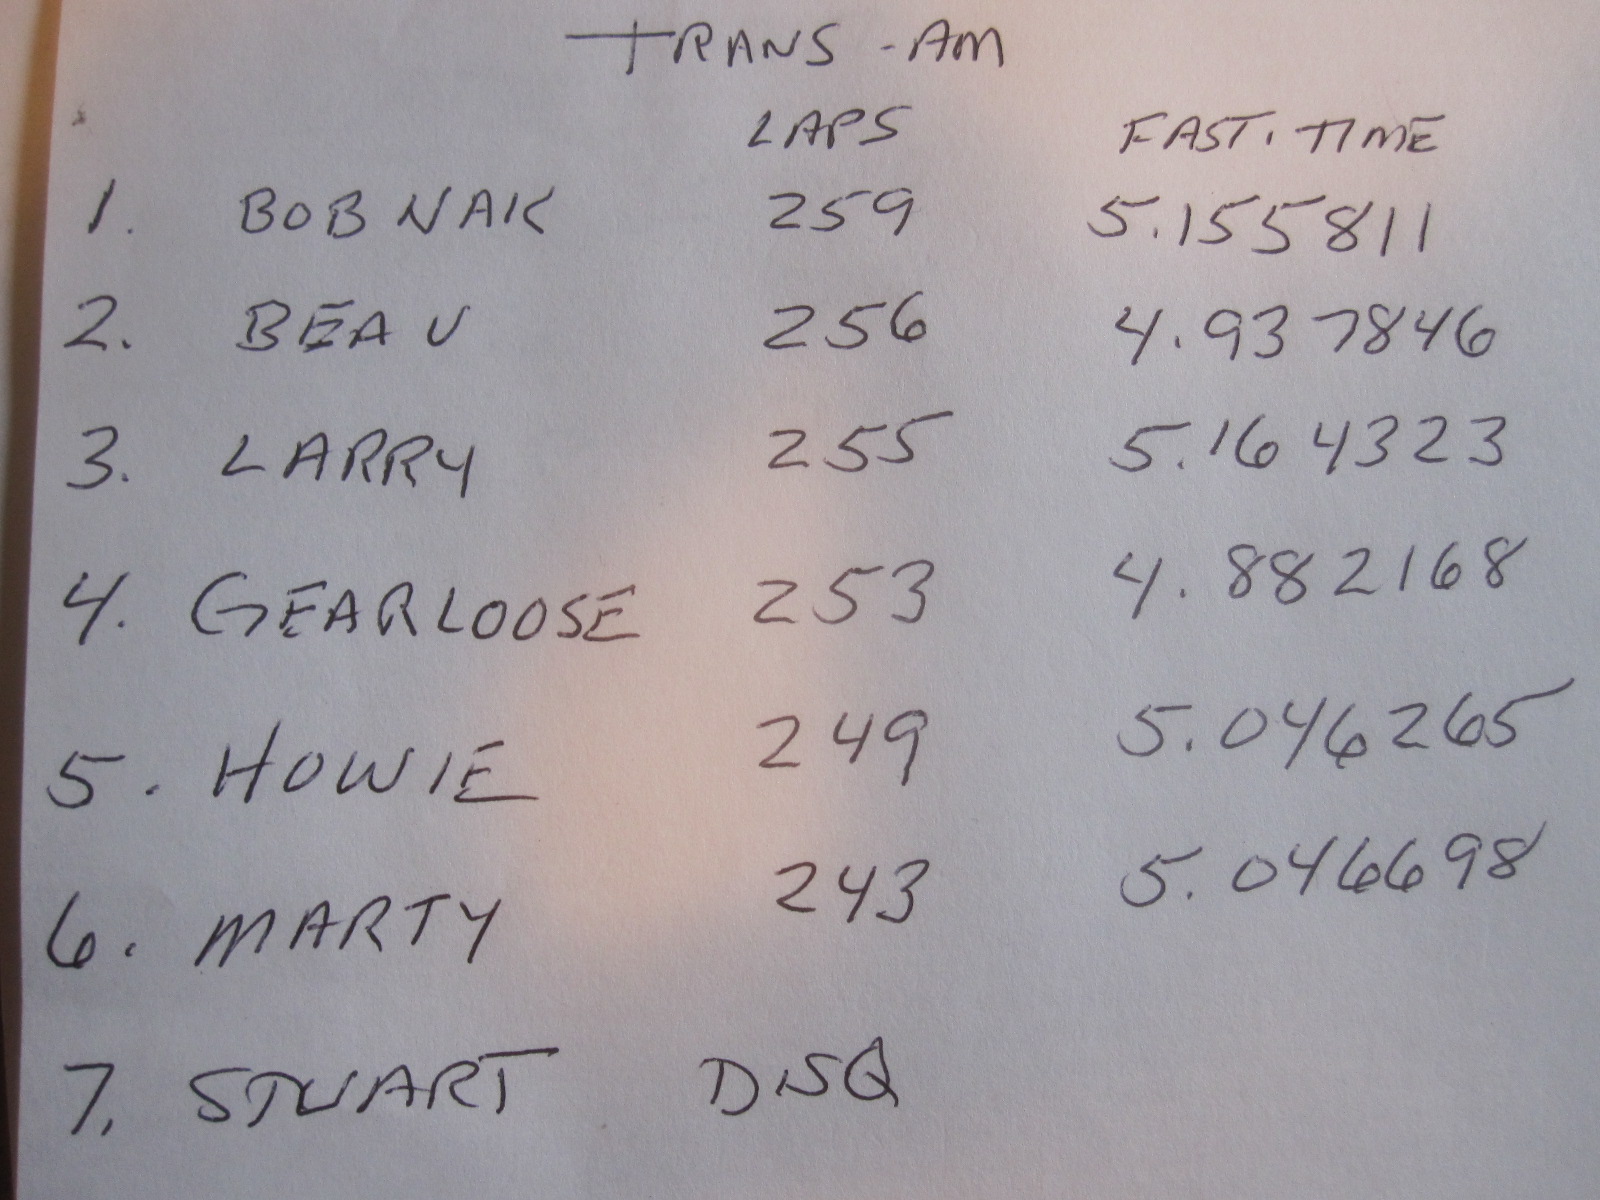 TRANS-AM
LAPS FAST. TIME
1. BOB NAK 259 5.155811
2. BEAU 256 4.937846
3. LARRY 255 5.164323
4. GEARLOOSE 253 4.882168
5. HOWIE 249 5.046265
6. MARTY 243 5.046698
7. STUART DISQ